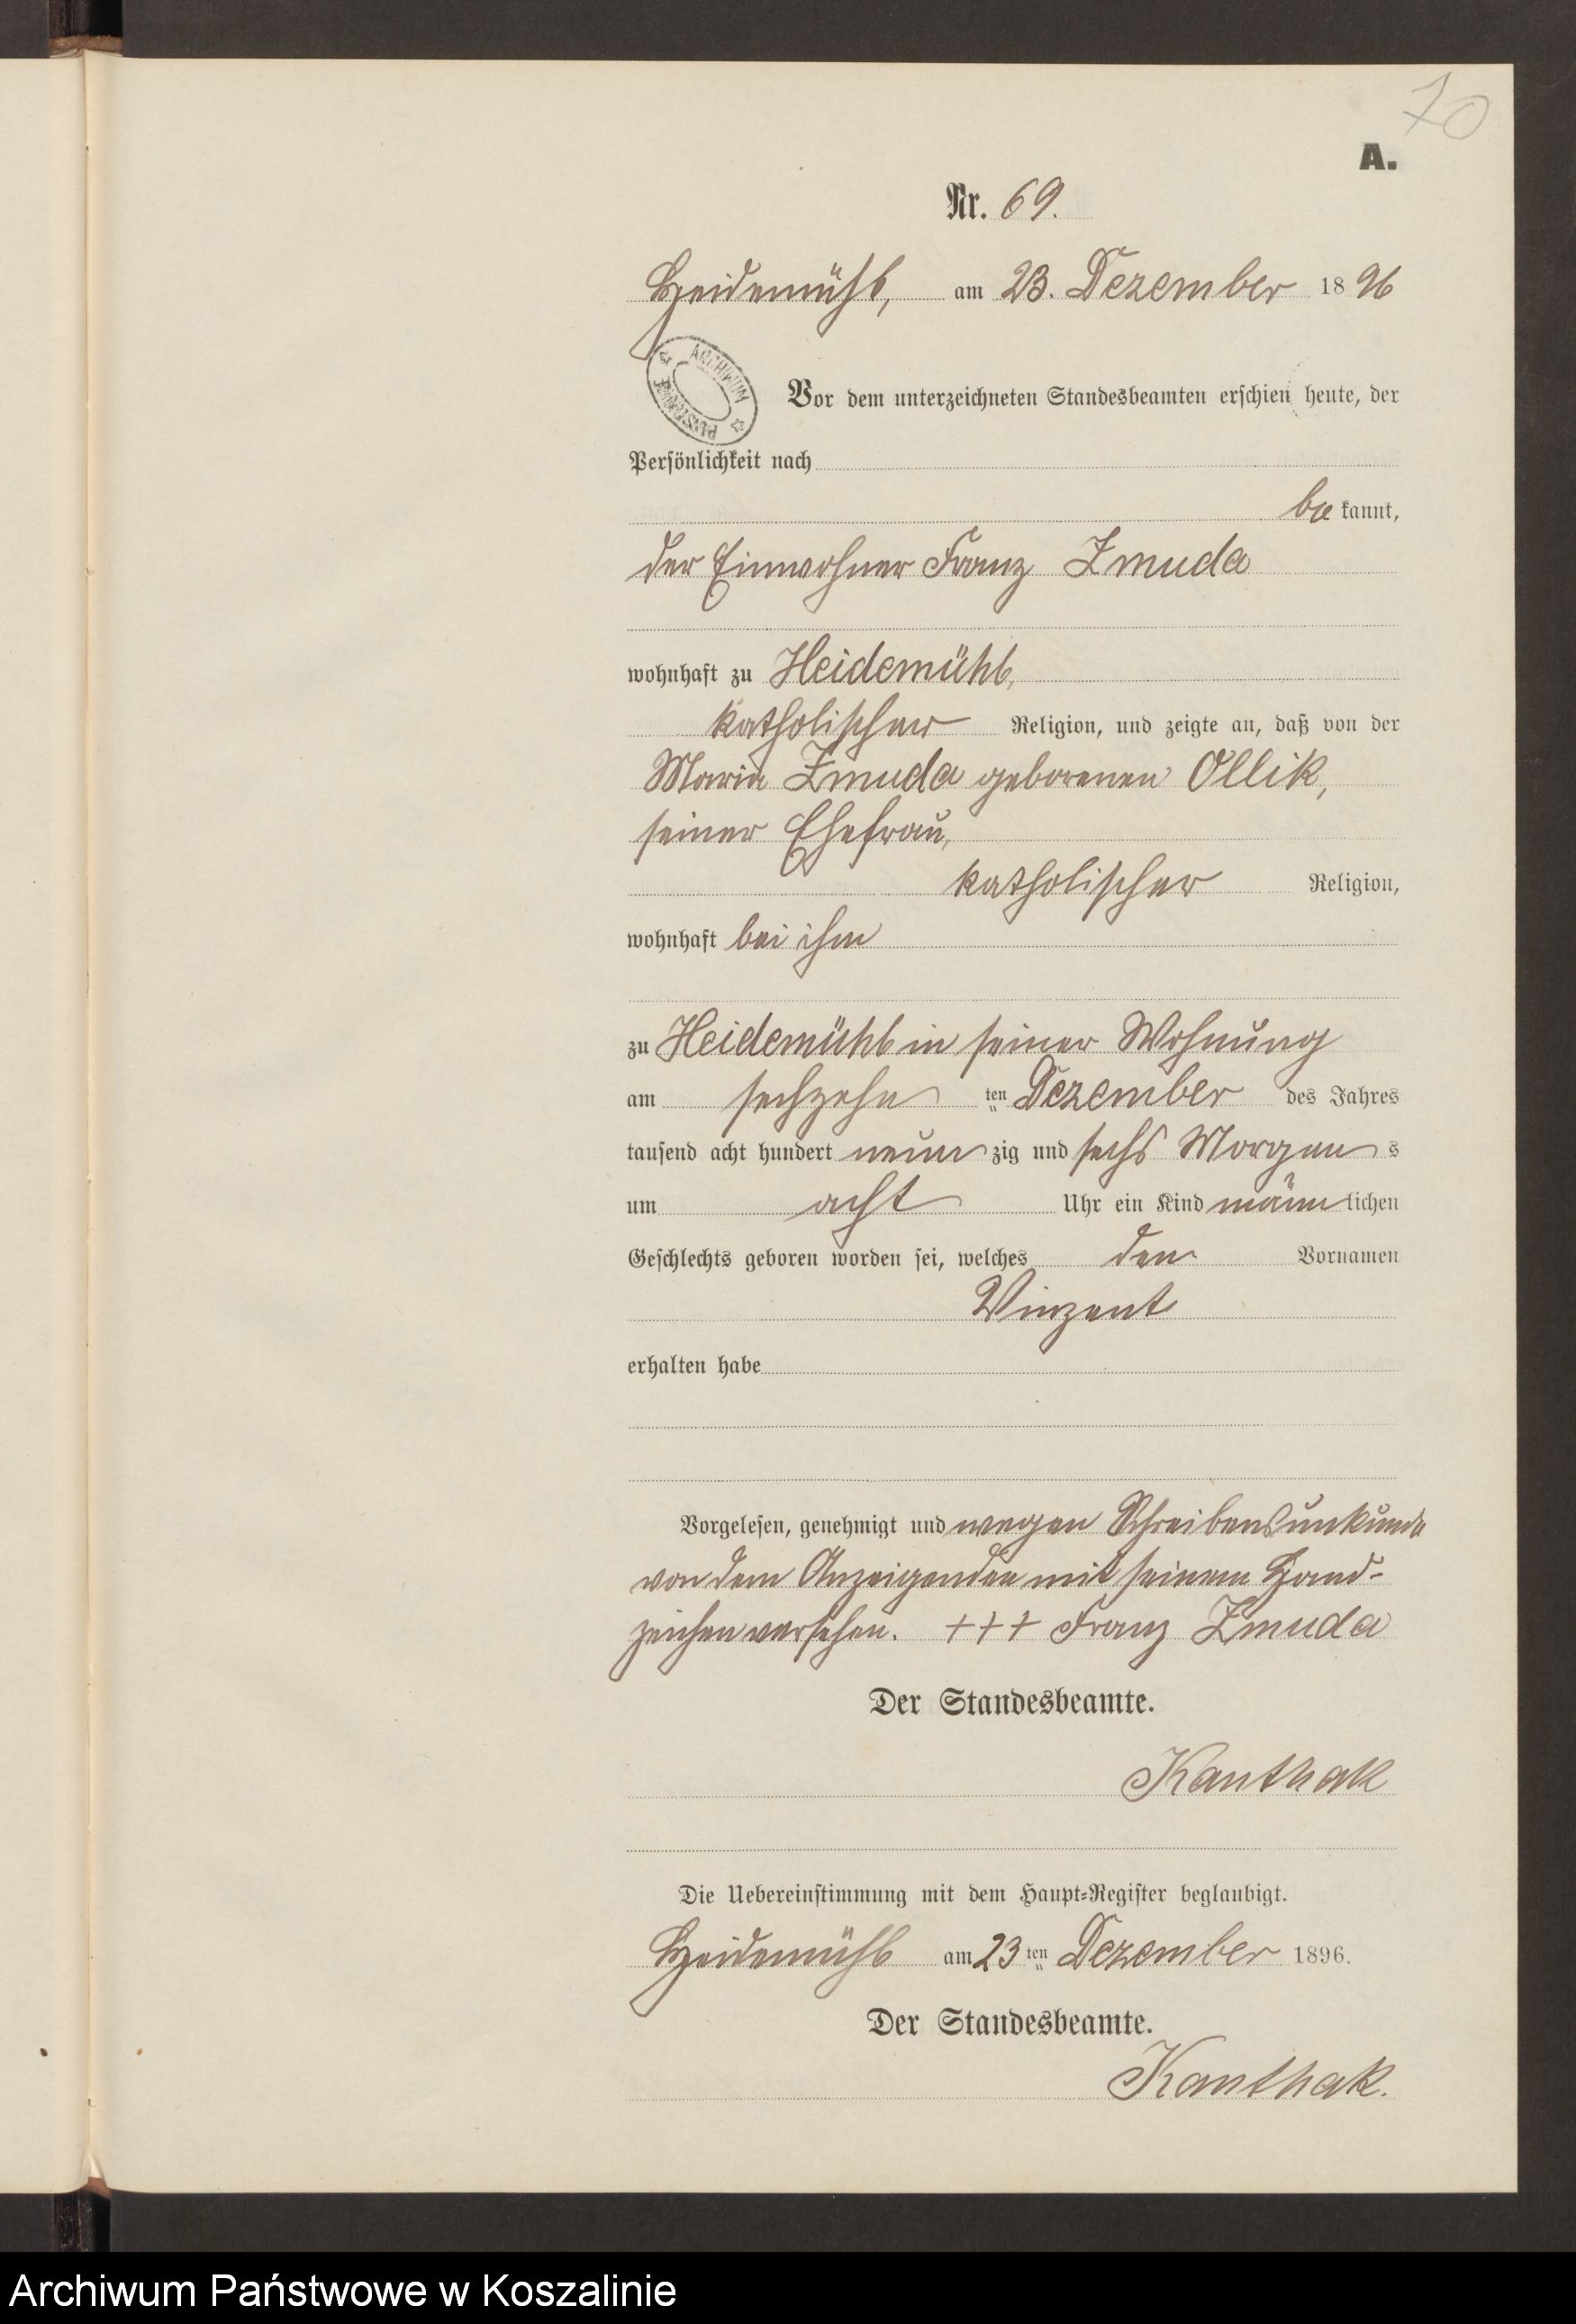 70
A.
Nr. 69.
Heidemühl, am 23. Dezember 1896
ARCHIWUM PAŃSTWOWE
Vor dem unterzeichneten Standesbeamten erschien heute, der
Persönlichkeit nach
be kannt,
der Einwohner Franz Zmuda
wohnhaft zu Heidemühl,
katholischer Religion, und zeigte an, daß von der
Maria Zmuda geborenen Ollik,
seiner Ehefrau,
katholischer Religion,
wohnhaft bei ihm
zu Heidemühl in seiner Wohnung
am sechzehn ten Dezember des Jahres
tausend acht hundert neun zig und sechs Morgen s
um acht Uhr ein Kind männ lichen
Geschlechts geboren worden sei, welches den Vornamen
Vinzent
erhalten habe
Vorgelesen, genehmigt und wegen Schreibensunkunde
von dem Anzeigenden mit seinem Hand-
zeichen versehen. +++ Franz Zmuda
Der Standesbeamte.
Kanthak
Die Uebereinstimmung mit dem Haupt=Register beglaubigt.
Heidemühl am 23 ten Dezember 1896.
Der Standesbeamte.
Kanthak.
Archiwum Państwowe w Koszalinie